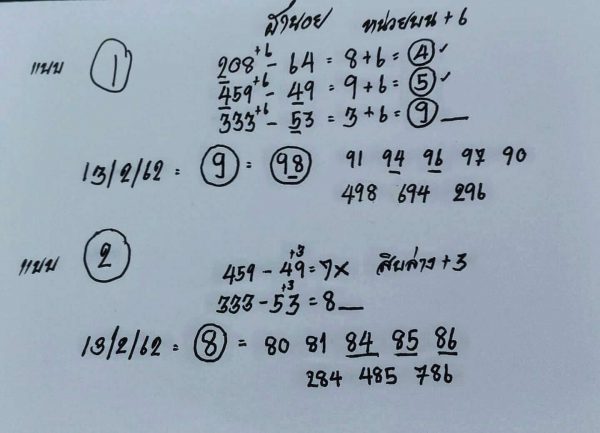 ฮานอย หน่วยบน + 6
แบบ 1
+6
208 - 64 = 8+6 = 4 ✓
+6
459 - 49 = 9+6 = 5 ✓
+6
333 - 53 = 3+6 = 9 __
13/2/62 = 9 = 98 91 94 96 97 90
498 694 296
แบบ 2
+3
459 - 49 = 7x สิบล่าง + 3
+3
333 - 53 = 8 __
13/2/62 = 8 = 80 81 84 85 86
284 485 786